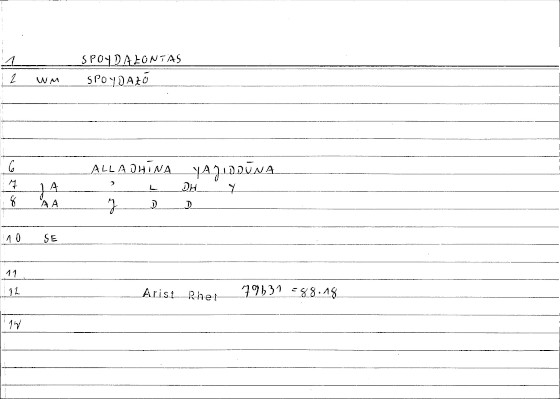 1 SPOYDAZONTAS
2 WM SPOYDAZŌ
6 ALLADHĪNA YAJIDDŪNA
7 JA ʾ L DH Y
8 AA J D D
10 SE
11
12 Arist Rhet 79b31 = 88.18
14